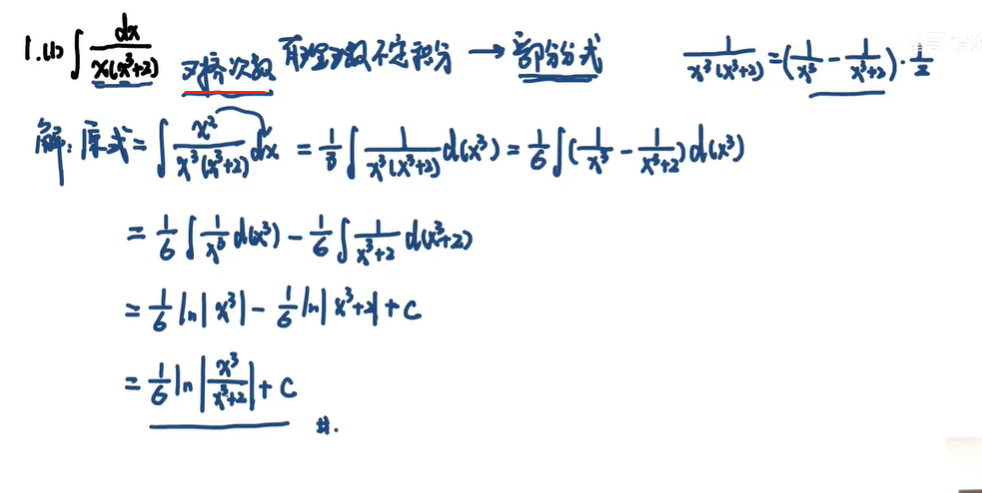 1.(1) ∫ dx/(x(x³+2)) 对接次数 有理函数不定积分 → 部分分式 1/(x³(x³+2)) = (1/x³ - 1/(x³+2))·1/2
解: 原式 = ∫ x²/(x³(x³+2)) dx = 1/3 ∫ 1/(x³(x³+2)) d(x³) = 1/6 ∫(1/x³ - 1/(x³+2)) d(x³)
= 1/6 ∫ 1/x³ d(x³) - 1/6 ∫ 1/(x³+2) d(x³+2)
= 1/6 ln|x³| - 1/6 ln|x³+2| + C
= 1/6 ln|x³/(x³+2)| + C #.